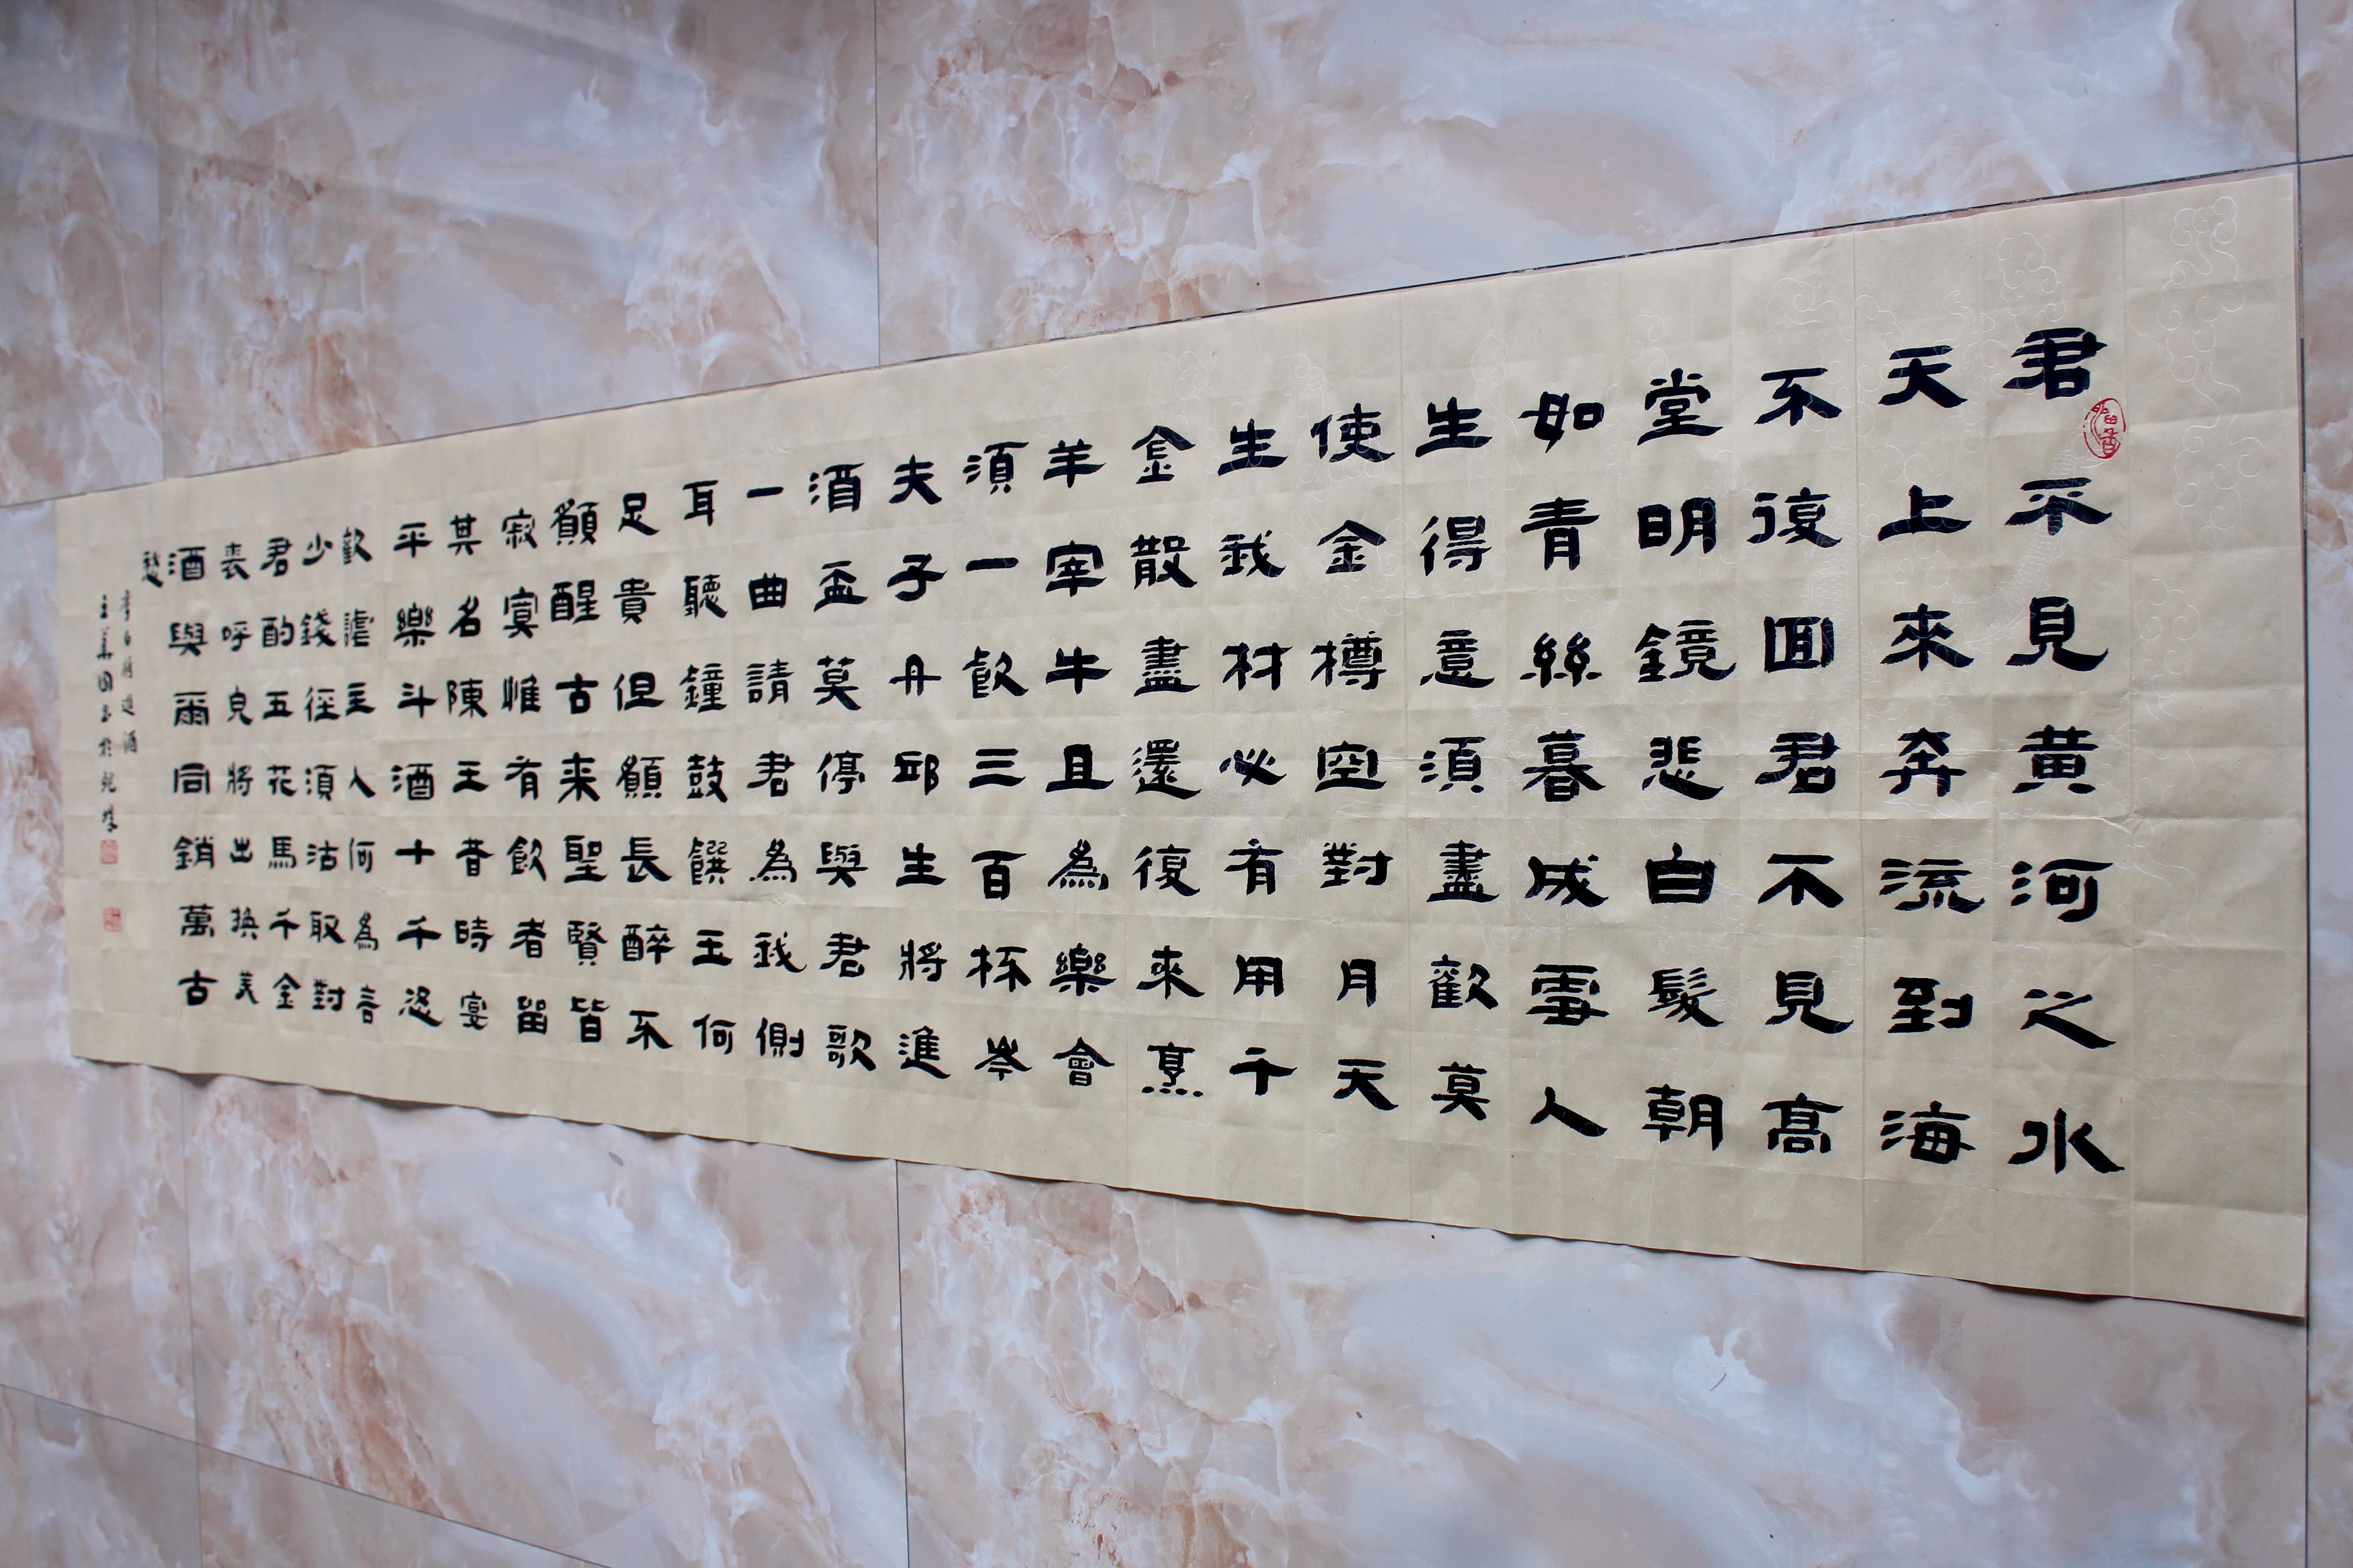 留香
君不見黃河之水
天上來奔流到海
不復囬君不見高
堂明鏡悲白髮朝
如青絲暮成雪人
生得意須盡歡莫
使金樽空對月天
生我材必有用千
金散盡還復來烹
羊宰牛且為樂會
須一飲三百杯岑
夫子丹邱生將進
酒盃莫停與君歌
一曲請君為我側
耳聽鐘鼓饌玉何
足貴但願長醉不
願醒古来聖賢皆
寂寞惟有飲者留
其名陳王昔時宴
平樂斗酒十千恣
歡謔主人何為言
少錢徑須沽取對
君酌五花馬千金
裘呼兒將出換美
酒與爾同銷萬古
愁
李白將進酒